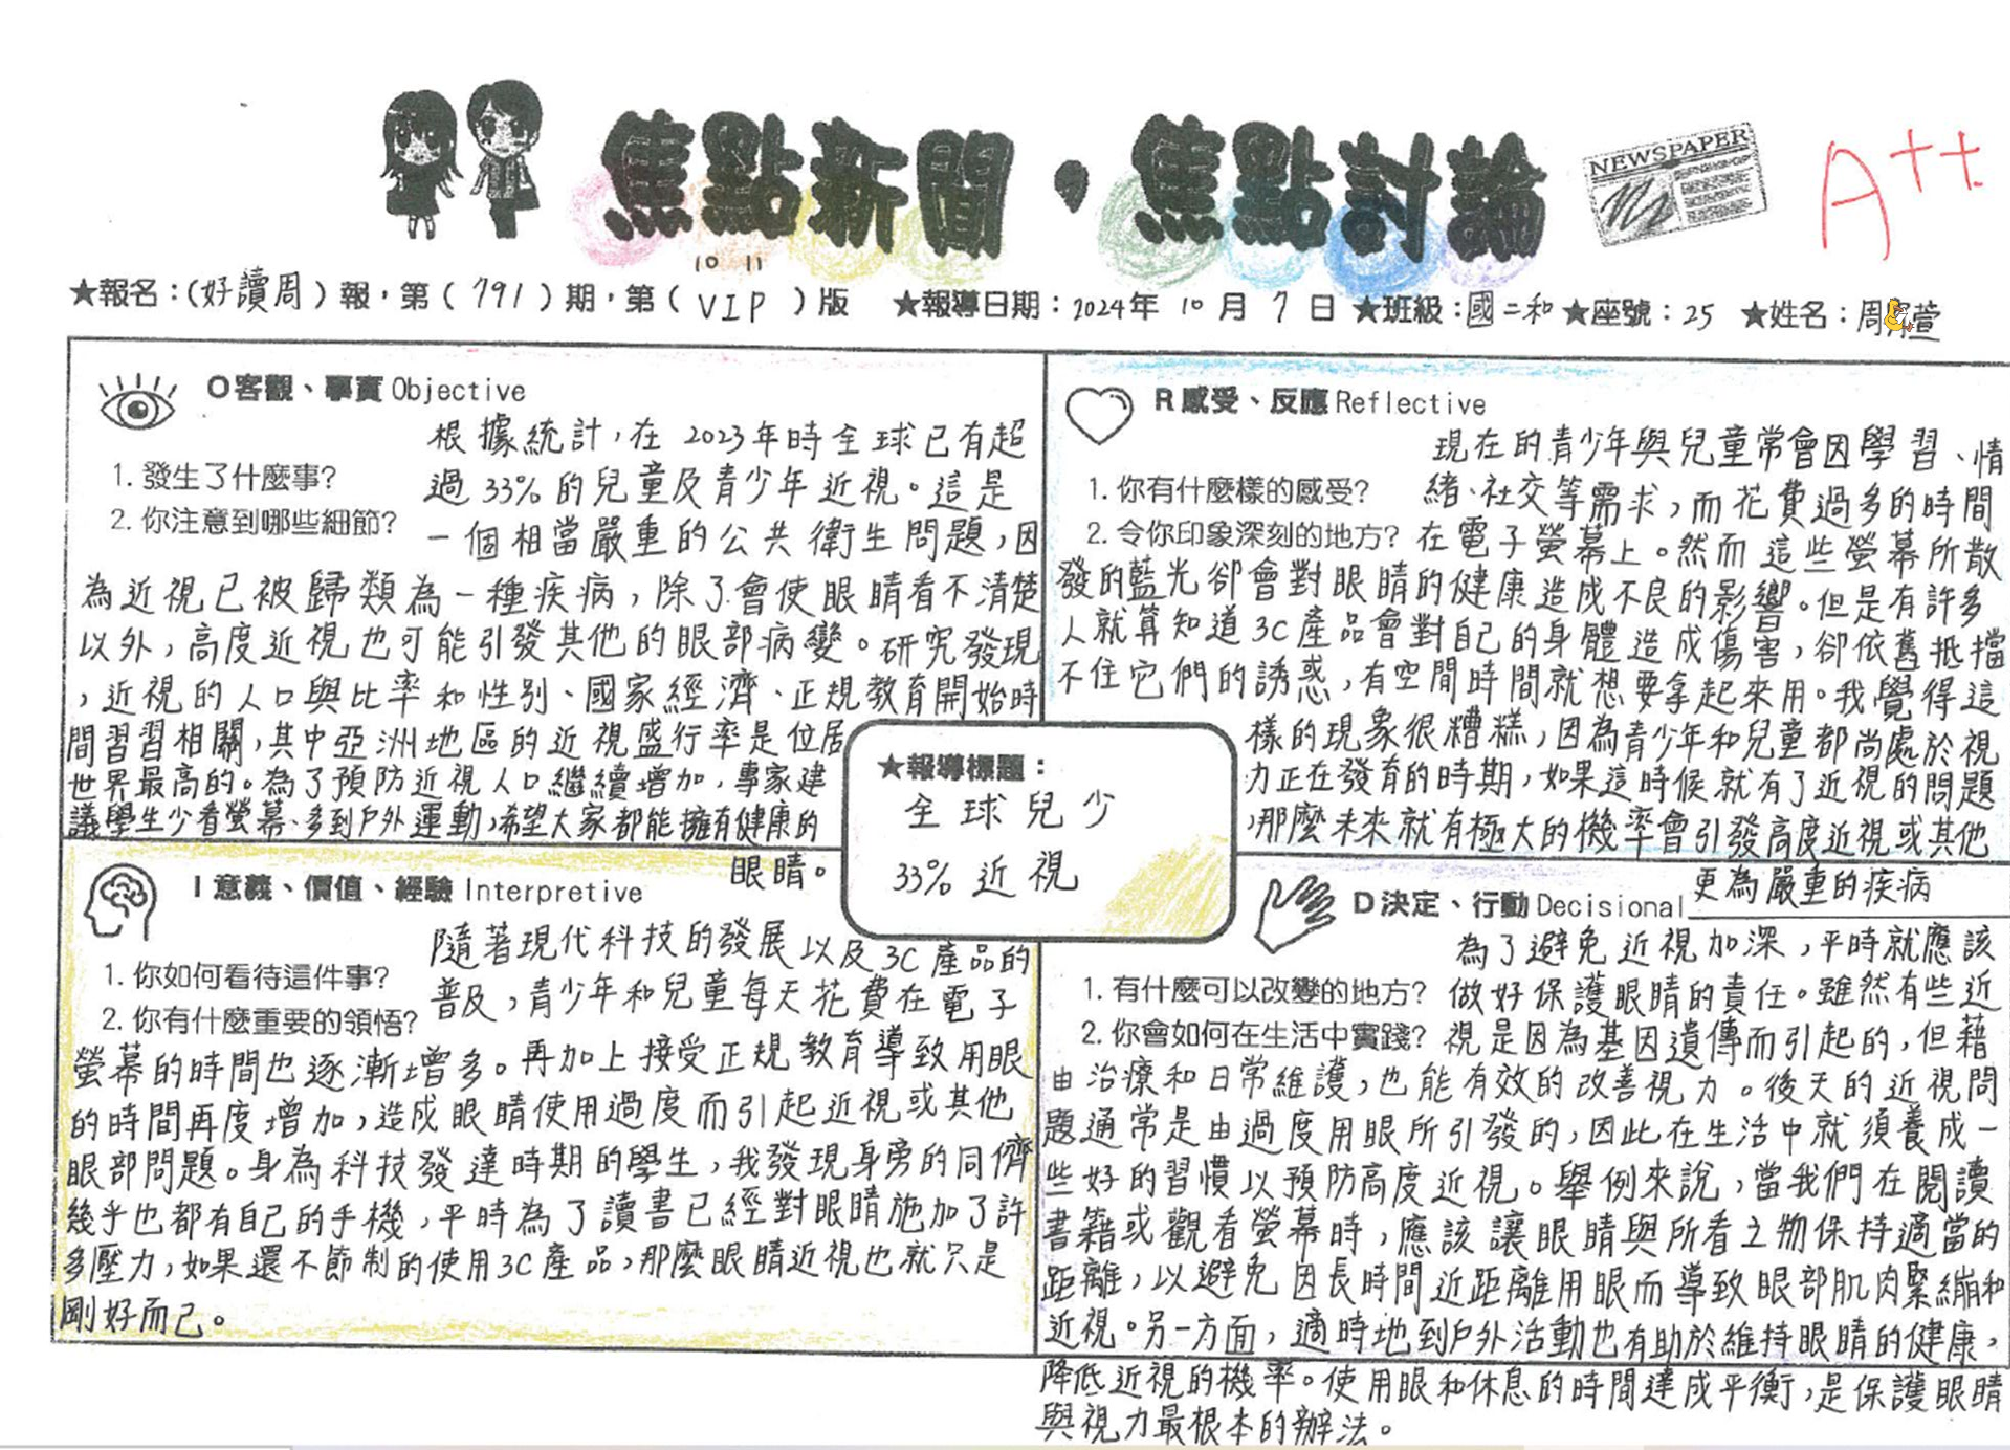 焦點新聞・焦點討論
NEWSPAPER
A++
10 11
★報名:(好讀周)報,第(791)期,第(VIP)版 ★報導日期:2024年10月7日 ★班級:國二和 ★座號:25 ★姓名:周 萱
O客觀、事實 Objective
1. 發生了什麼事?
2. 你注意到哪些細節?
根據統計,在2023年時全球已有超
過33%的兒童及青少年近視。這是
一個相當嚴重的公共衛生問題,因
為近視已被歸類為一種疾病,除了會使眼睛看不清楚
以外,高度近視也可能引發其他的眼部病變。研究發現
,近視的人口與比率和性別、國家經濟、正規教育開始時
間習習相關,其中亞洲地區的近視盛行率是位居
世界最高的。為了預防近視人口繼續增加,專家建
議學生少看螢幕、多到戶外運動,希望大家都能擁有健康的
眼睛。
R感受、反應 Reflective
1. 你有什麼樣的感受?
2. 令你印象深刻的地方?
現在的青少年與兒童常會因學習、情
緒、社交等需求,而花費過多的時間
在電子螢幕上。然而這些螢幕所散
發的藍光卻會對眼睛的健康造成不良的影響。但是有許多
人就算知道3C產品會對自己的身體造成傷害,卻依舊抵擋
不住它們的誘惑,有空閒時間就想要拿起來用。我覺得這
樣的現象很糟糕,因為青少年和兒童都尚處於視
力正在發育的時期,如果這時候就有了近視的問題
,那麼未來就有極大的機率會引發高度近視或其他
更為嚴重的疾病
★報導標題:
全球兒少
33%近視
I意義、價值、經驗 Interpretive
1. 你如何看待這件事?
2. 你有什麼重要的領悟?
隨著現代科技的發展以及3C產品的
普及,青少年和兒童每天花費在電子
螢幕的時間也逐漸增多。再加上接受正規教育導致用眼
的時間再度增加,造成眼睛使用過度而引起近視或其他
眼部問題。身為科技發達時期的學生,我發現身旁的同儕
幾乎也都有自己的手機,平時為了讀書已經對眼睛施加了許
多壓力,如果還不節制的使用3C產品,那麼眼睛近視也就只是
剛好而已。
D決定、行動 Decisional
1. 有什麼可以改變的地方?
2. 你會如何在生活中實踐?
為了避免近視加深,平時就應該
做好保護眼睛的責任。雖然有些近
視是因為基因遺傳而引起的,但藉
由治療和日常維護,也能有效的改善視力。後天的近視問
題通常是由過度用眼所引發的,因此在生活中就須養成一
些好的習慣以預防高度近視。舉例來說,當我們在閱讀
書籍或觀看螢幕時,應該讓眼睛與所看之物保持適當的
距離,以避免因長時間近距離用眼而導致眼部肌肉緊繃和
近視。另一方面,適時地到戶外活動也有助於維持眼睛的健康,
降低近視的機率。使用眼和休息的時間達成平衡,是保護眼睛
與視力最根本的辦法。